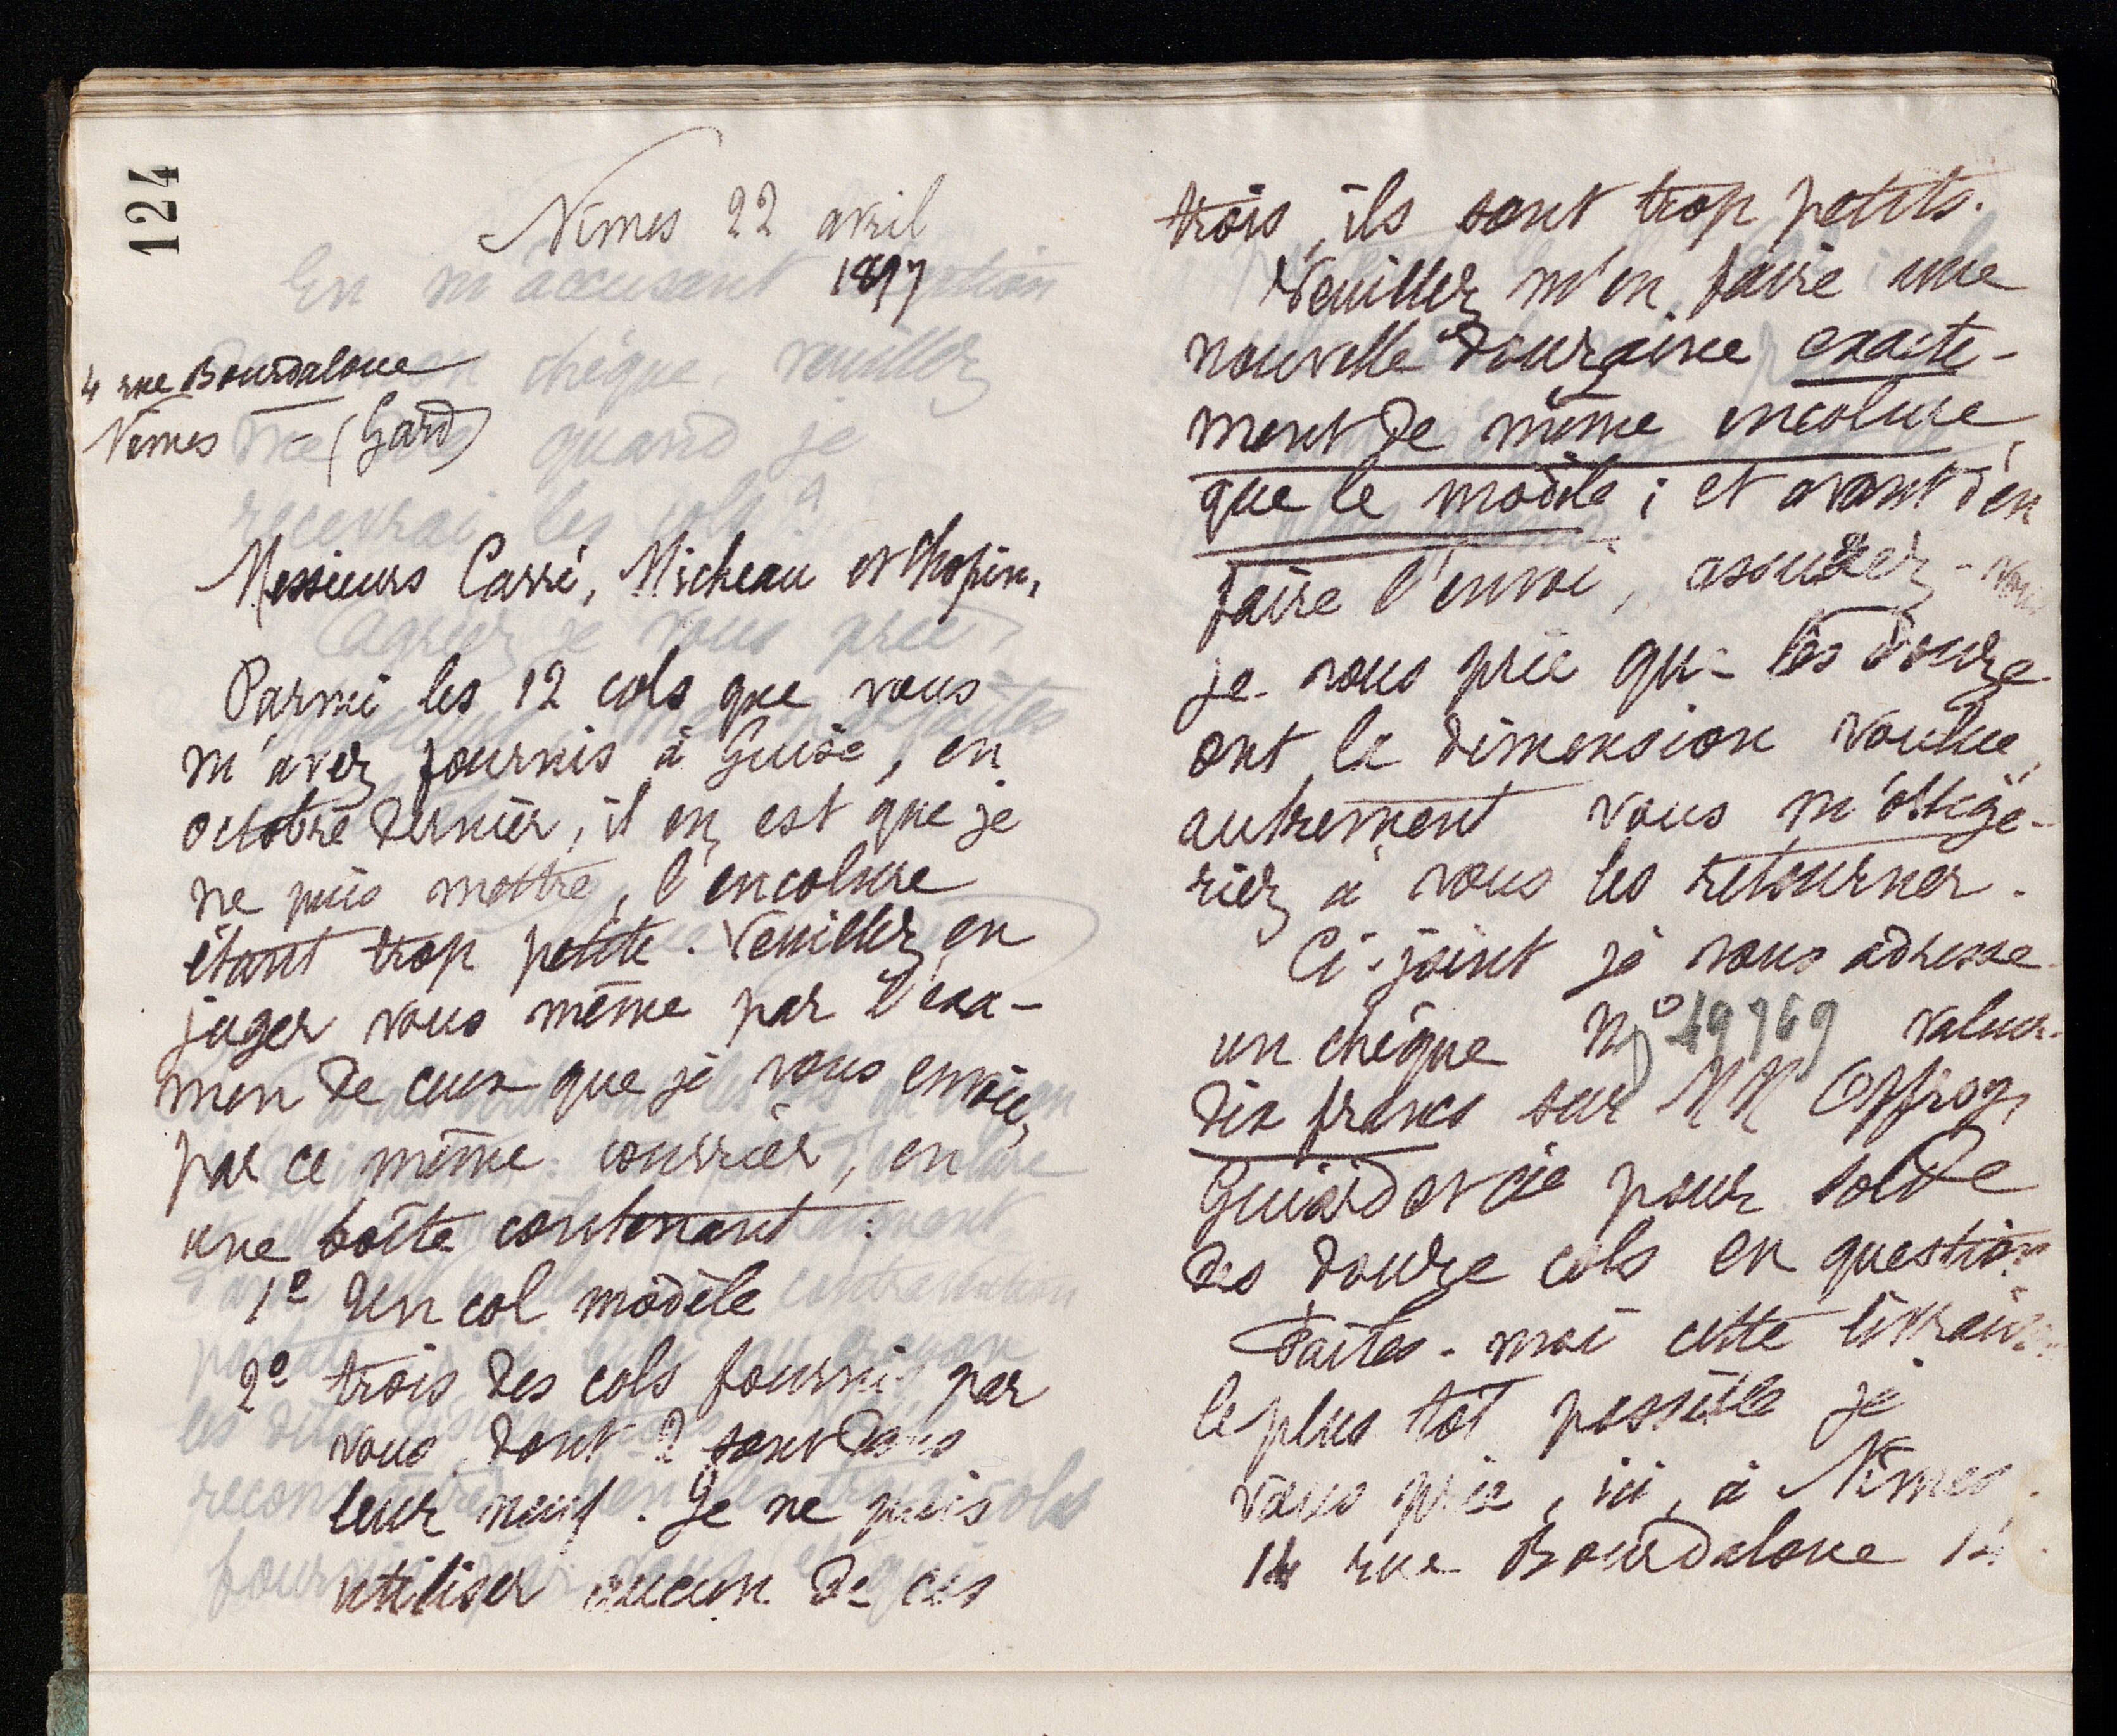 124
Nîmes 22 avril
1897
14 rue Bourdaloue
Nîmes - (Gard)
Messieurs Carré, Micheau et Chopin,
Parmi les 12 cols que vous
m'avez fournis à Guise, en
octobre dernier, il en est que je
ne puis mettre, l'encolure
étant trop petite. Veuillez en
juger vous même par l'exa-
men de ceux que je vous envoie,
par ce même courrier, en
une boîte contenant :
1º Un col modèle
2º trois des cols fournis par
vous dont 2 sont dans
leur neuf. Je ne puis
utiliser aucun de ces
trois, ils sont trop petits.
Veuillez m'en faire une
nouvelle douzaine exacte-
ment de même encolure
que le modèle ; et avant d'en
faire l'envoi, assurez-vous
je vous prie que les douze
ont la dimension voulue,
autrement vous m'oblige-
riez à vous les retourner.
Ci-joint je vous adresse
un chèque Nº valeur
dix francs sur MM Offroy,
Guiard et cie pour solde
des douze cols en question
Faites-moi cette livraison
le plus tôt possible je
vous prie, ici, à Nîmes,
14 rue Bourdaloue 14